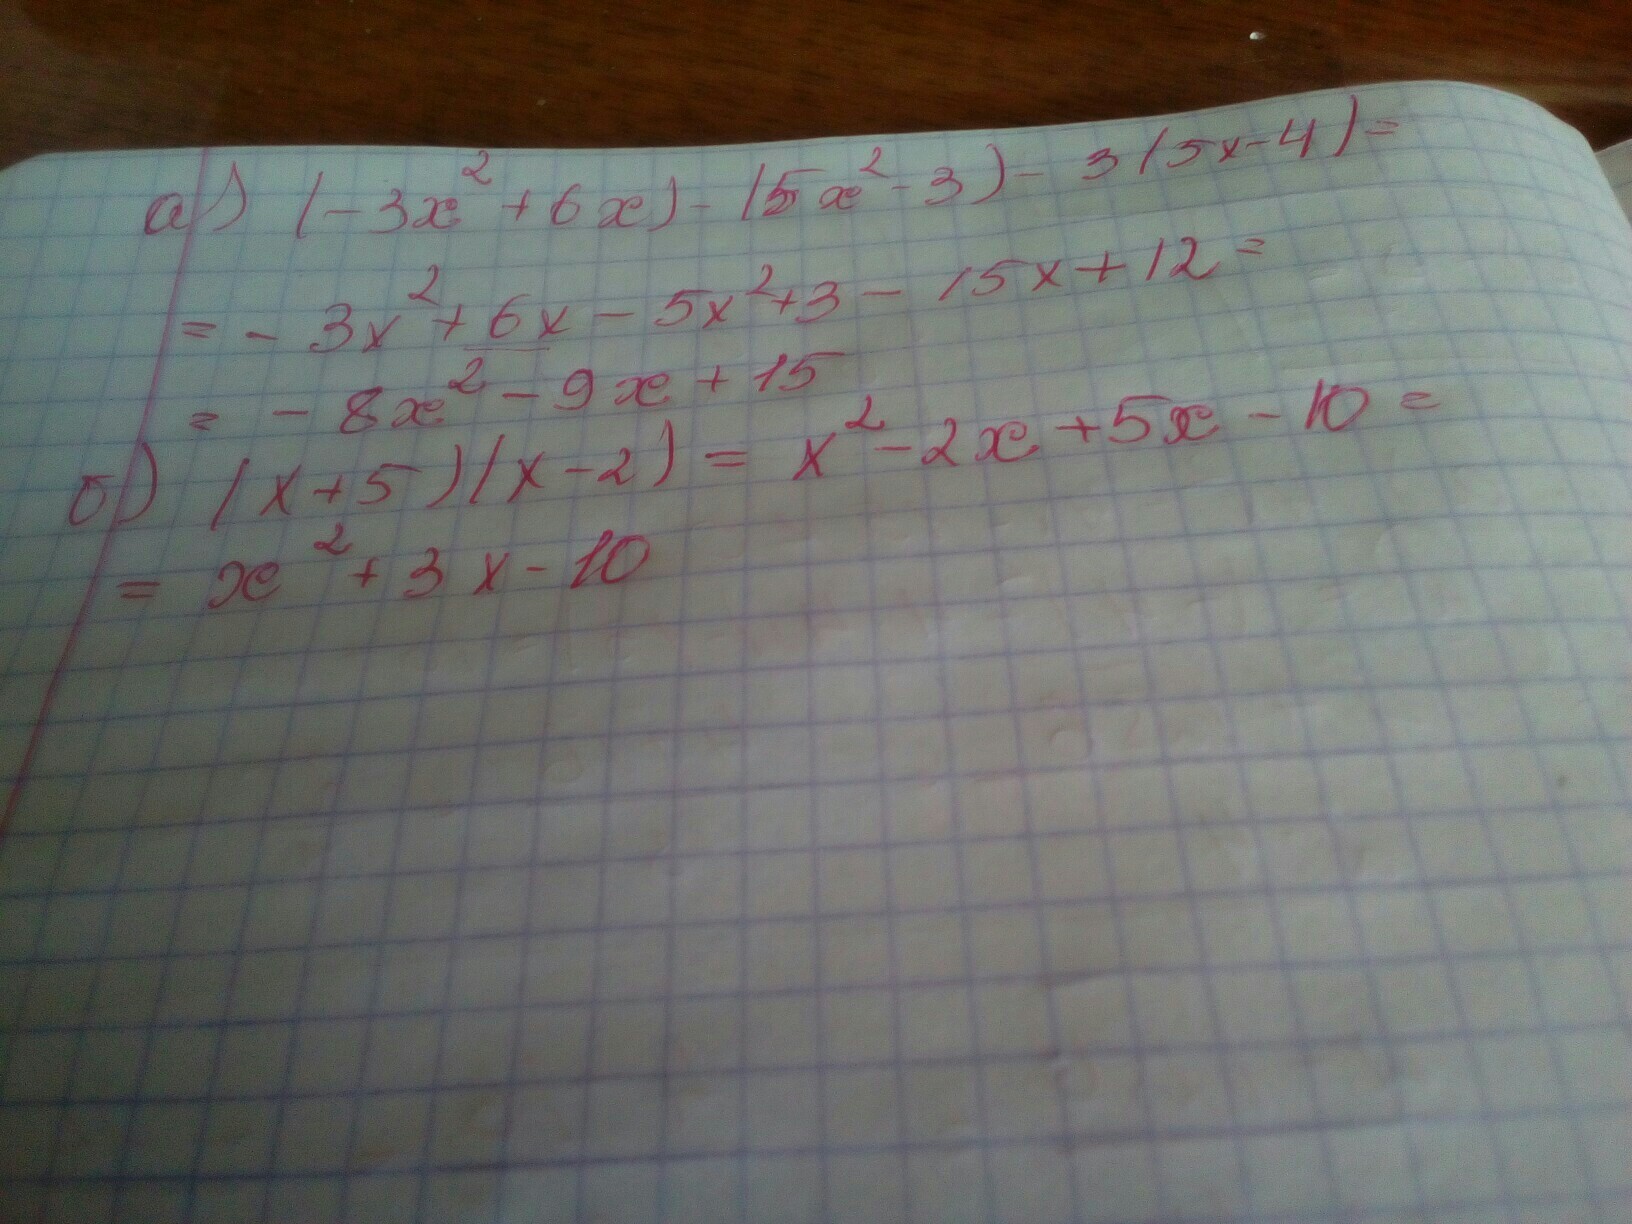 а) (-3x²+6x)-(5x²-3)-3(5x-4)=
=-3x²+6x-5x²+3-15x+12=
=-8x²-9x+15
б) (x+5)(x-2)=x²-2x+5x-10=
=x²+3x-10